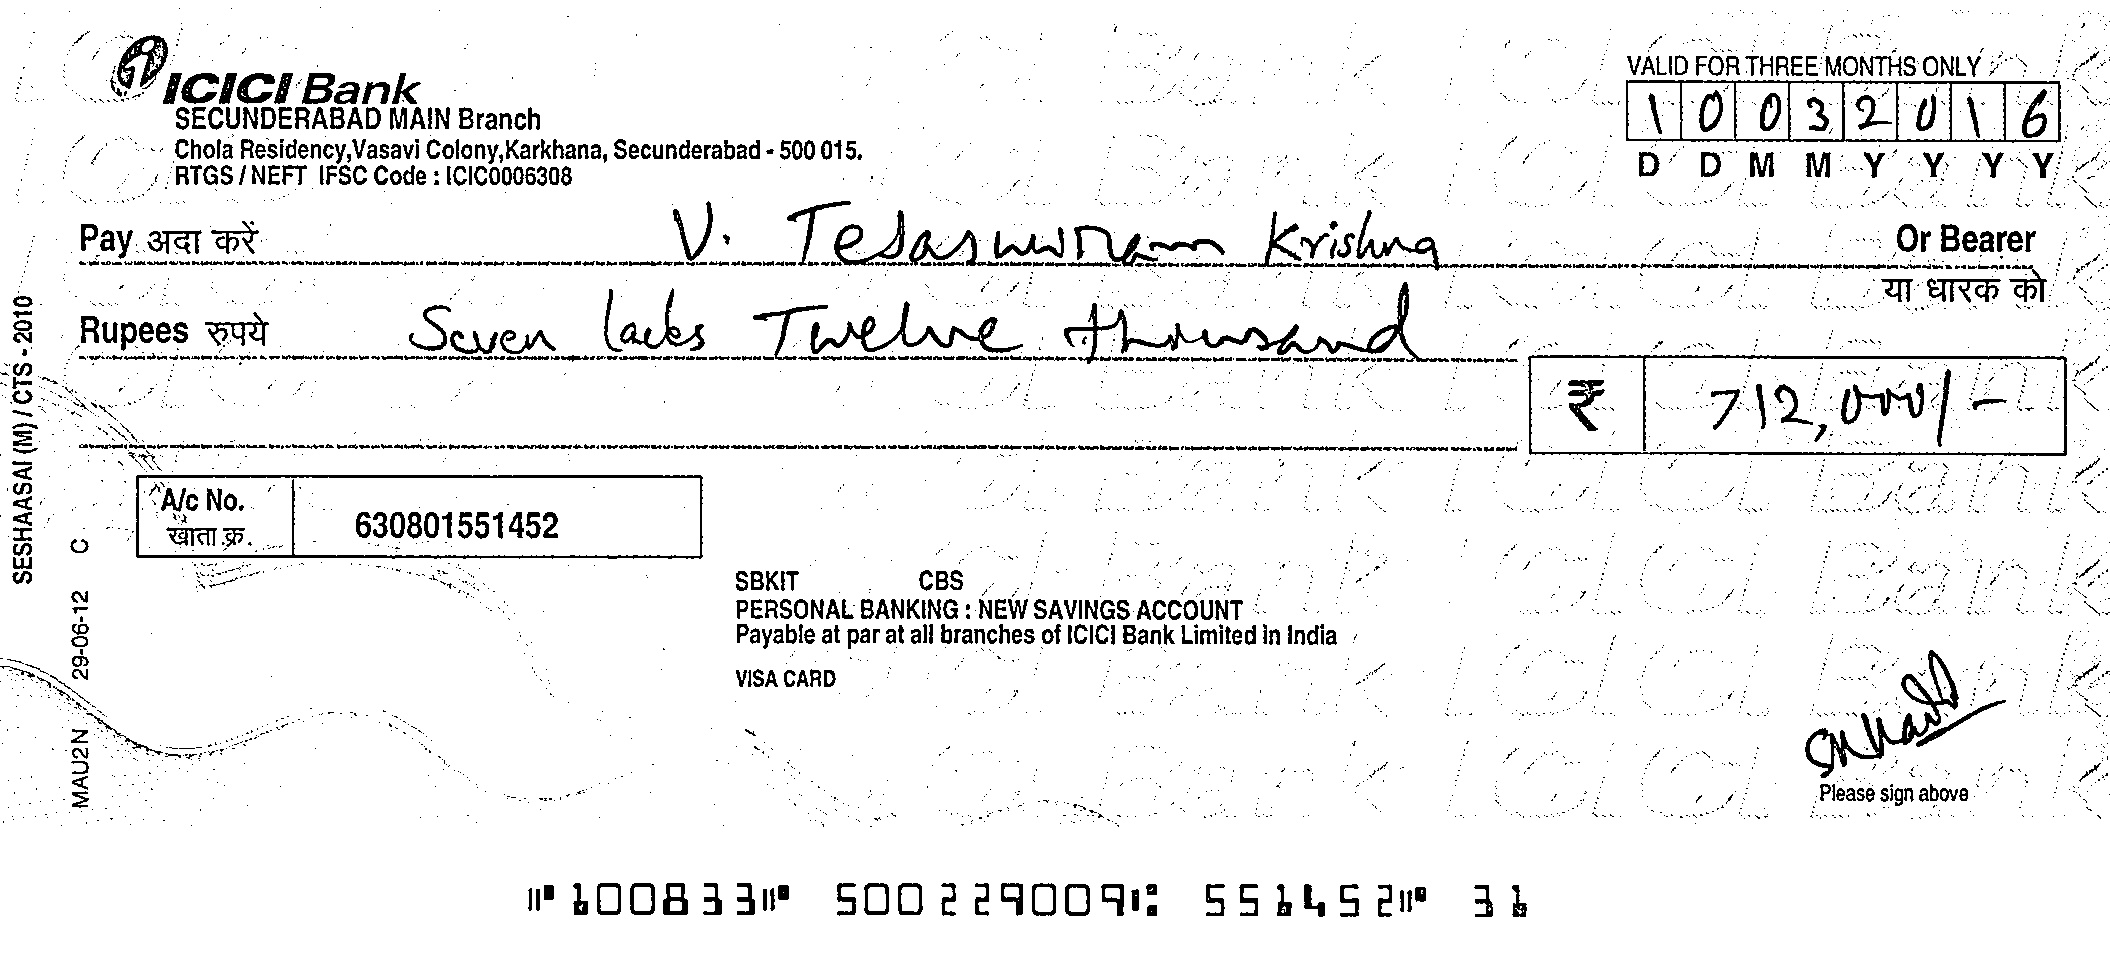 ICICI Bank
SECUNDERABAD MAIN Branch
Chola Residency,Vasavi Colony,Karkhana, Secunderabad - 500 015.
RTGS / NEFT IFSC Code : ICIC0006308
VALID FOR THREE MONTHS ONLY
1 0 0 3 2 0 1 6
D D M M Y Y Y Y
Pay अदा करें V. Tejaswwram Krishna Or Bearer
या धारक को
Rupees रुपये Seven lacks Twelve thousand
₹ 712,000/-
A/c No. 630801551452
खाता क्र.
SBKIT CBS
PERSONAL BANKING : NEW SAVINGS ACCOUNT
Payable at par at all branches of ICICI Bank Limited in India
VISA CARD
Please sign above
SESHAASAI (M) / CTS - 2010
MAU2N 29-06-12 C
⑈100833⑈ 500229009⑆ 551452⑈ 31